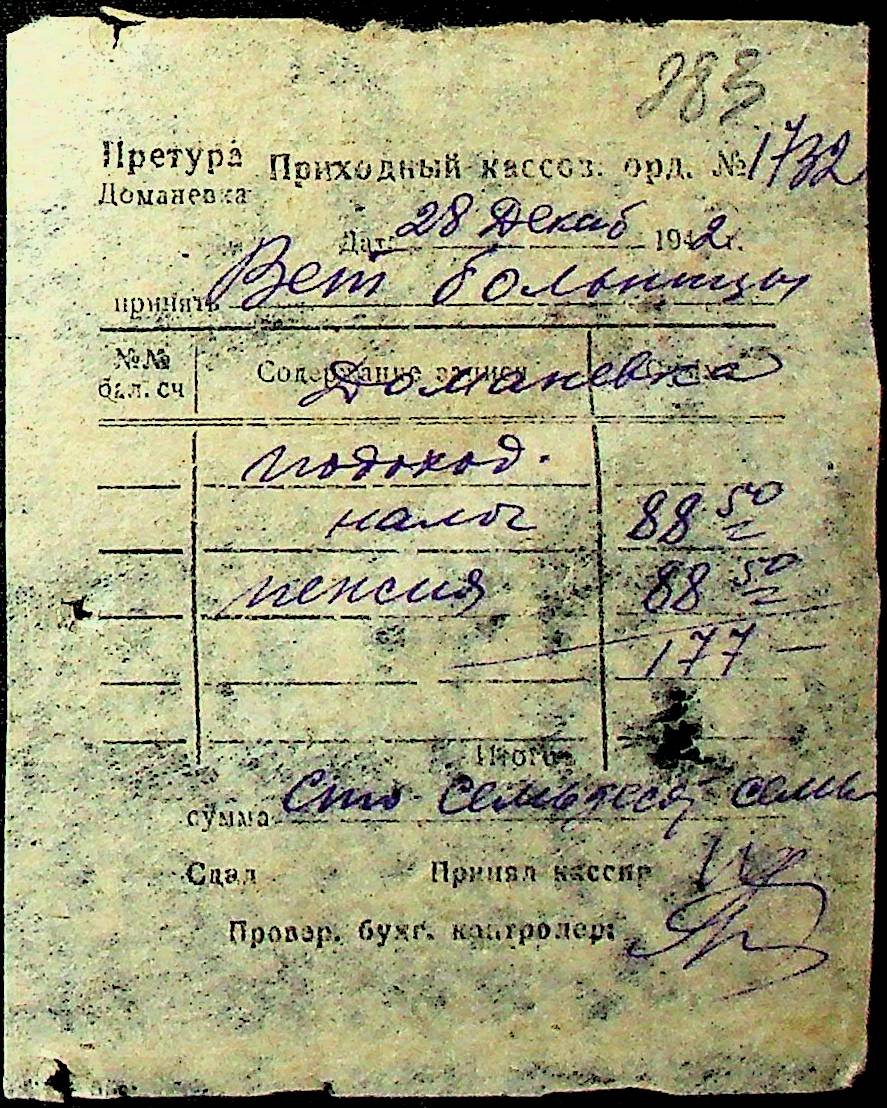 283
Претура Приходный кассов. орд. № 1732
Доманевка
Дат. 28 Декаб 1942 г.
принять Вет больницы
№№ бал. сч Содержание записи Сумма
Доманевка
подоход.
налог 88 50
пенсия 88 50
177 —
Итого
сумма Сто семьдесят семь
Сдал Принял кассир
Провер. бухг. контролер: